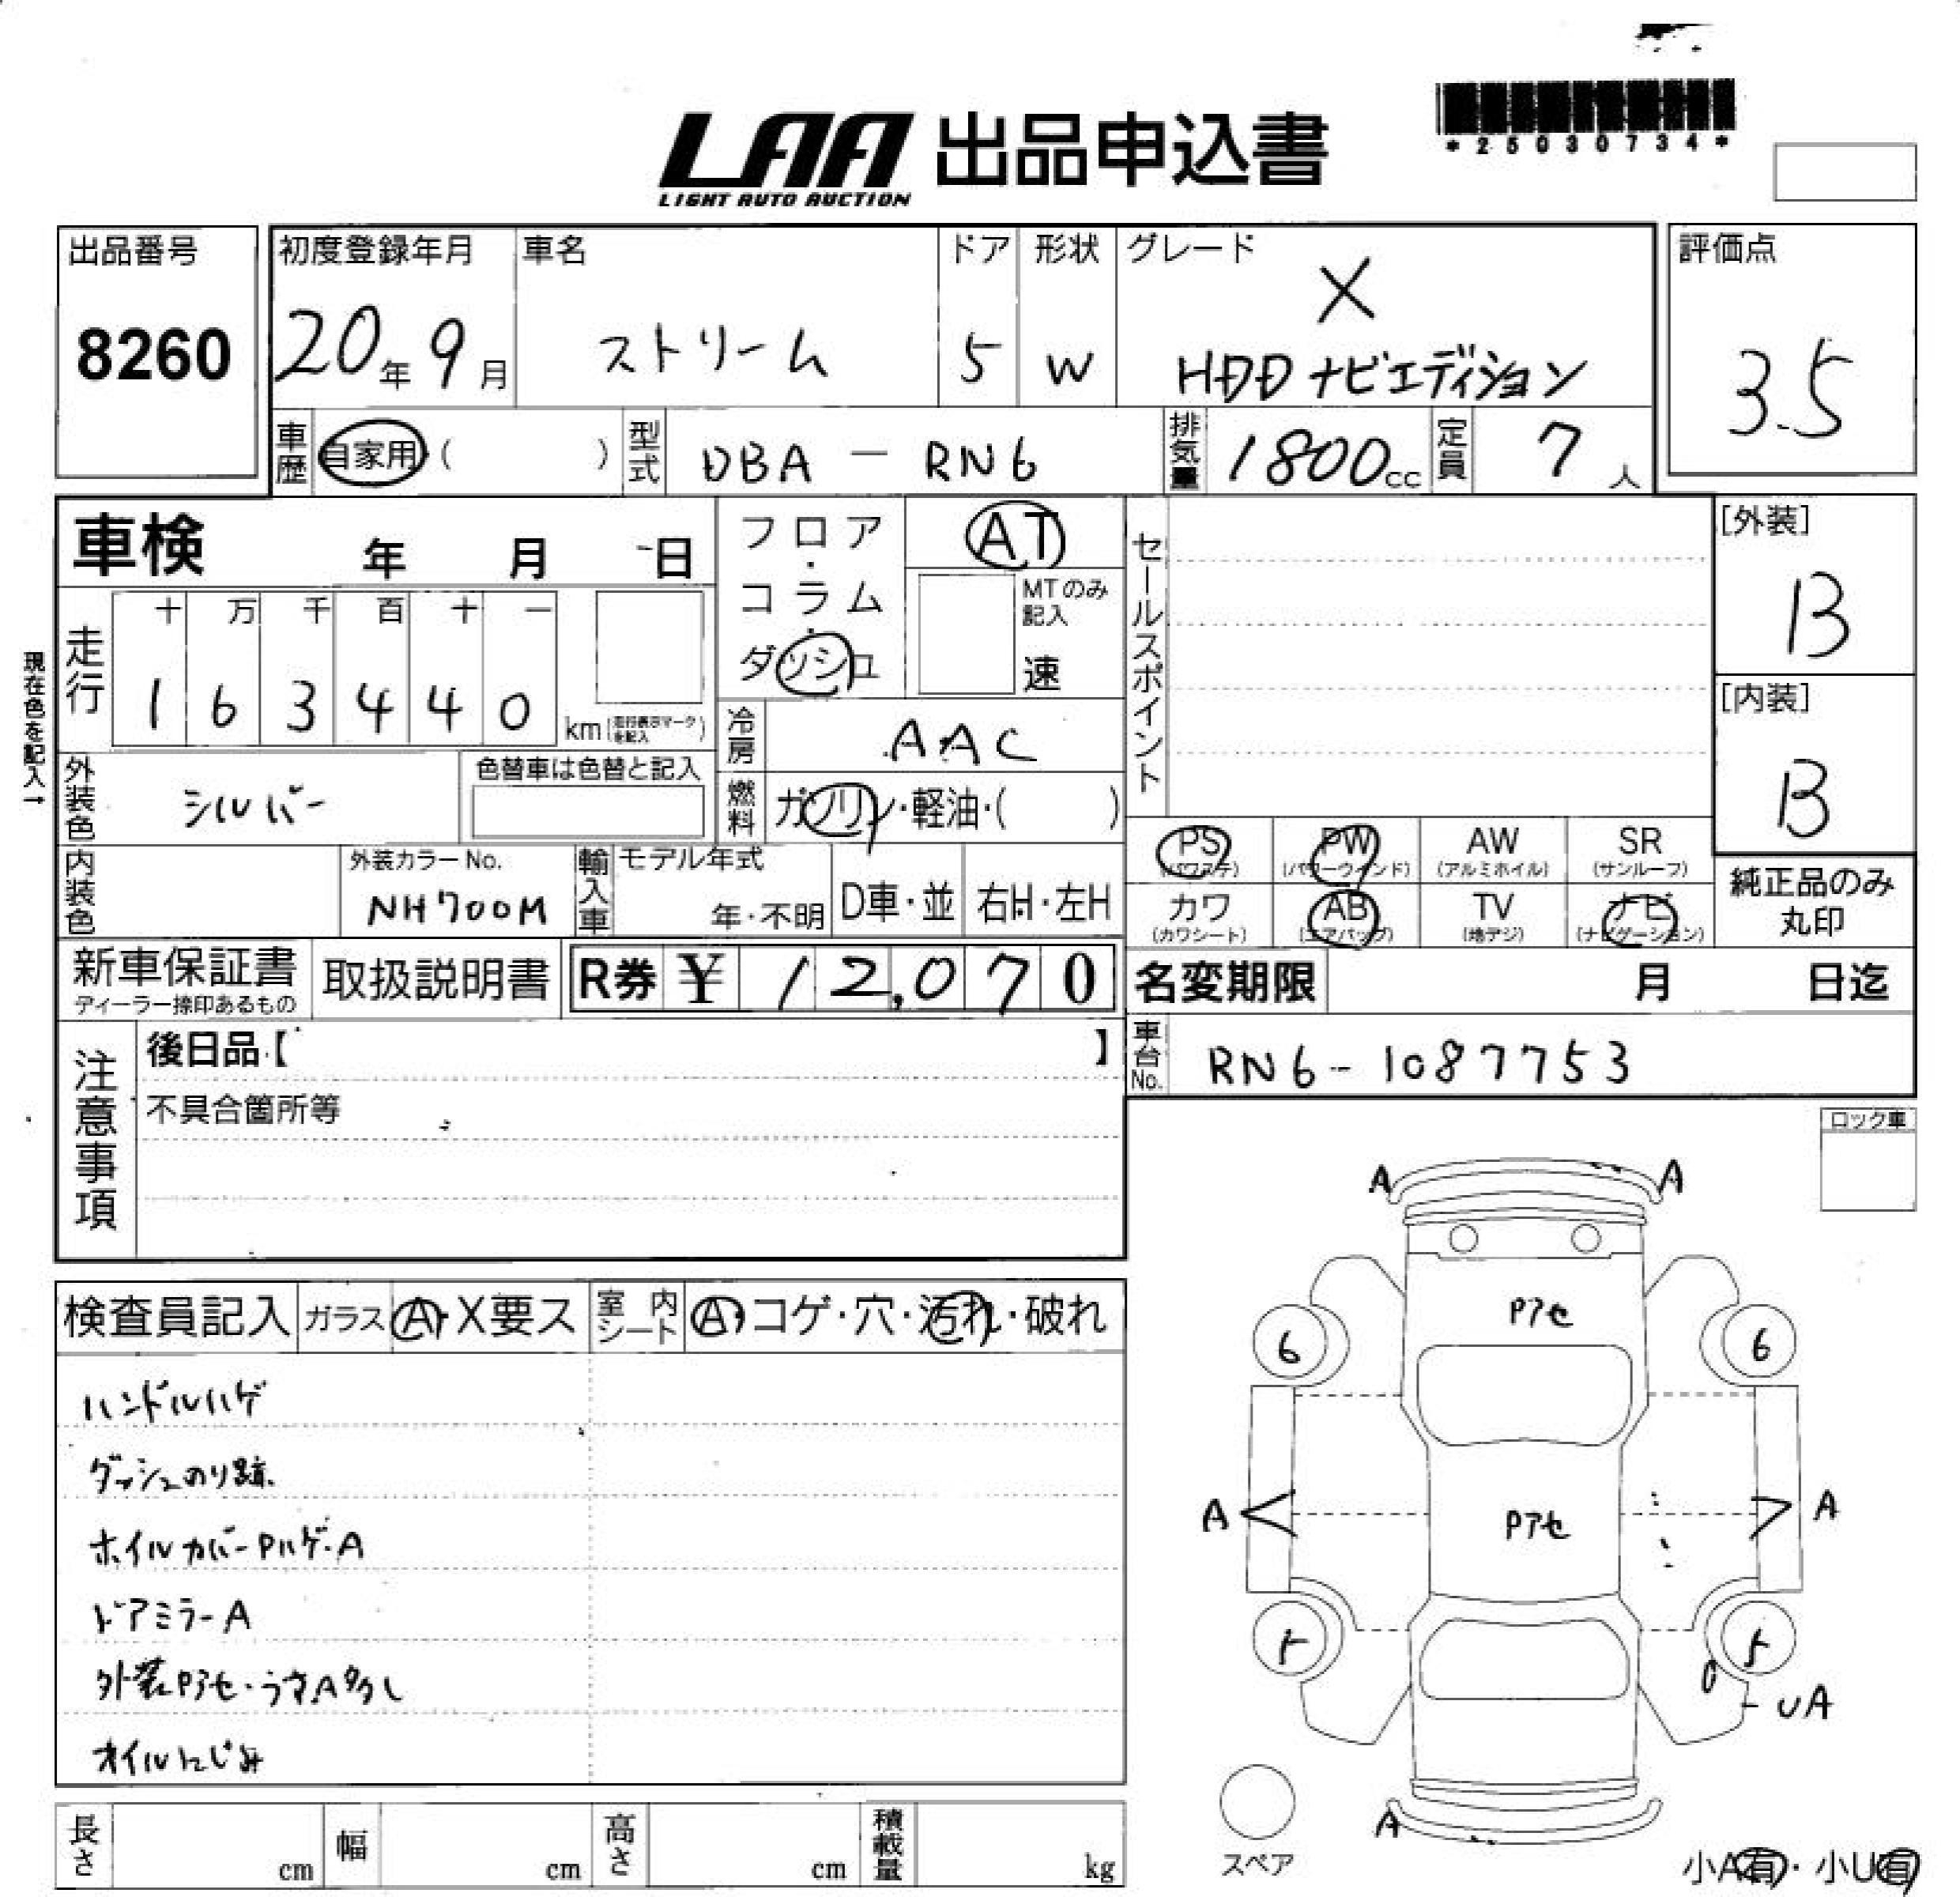 LAA 出品申込書
LIGHT AUTO AUCTION
*25030734*
出品番号
8260
初度登録年月
20年 9月
車名
ストリーム
ドア
5
形状
W
グレード
X
HDDナビエディション
評価点
3.5
車歴
自家用 ( )
型式
DBA - RN6
排気量
1800cc
定員
7人
車検 年 月 日
フロア・コラム・ダッシュ
AT
MTのみ記入
速
セールスポイント
[外装]
B
[内装]
B
現在色を記入→
走行
十 万 千 百 十 一
1 6 3 4 4 0 km
(走行表示マークを記入)
冷房
AAC
外装色
シルバー
色替車は色替と記入
燃料
ガソリン・軽油・( )
内装色
外装カラーNo.
NH700M
輸入車
モデル年式
年・不明
D車・並
右H・左H
PS (パワステ)
PW (パワーウィンド)
AW (アルミホイル)
SR (サンルーフ)
カワ (カワシート)
AB (エアバッグ)
TV (地デジ)
ナビ (ナビゲーション)
純正品のみ
丸印
新車保証書
ディーラー捺印あるもの
取扱説明書
R券 ¥ 12,070
名変期限 月 日迄
車台No.
RN6-1087753
注意事項
後日品【 】
不具合箇所等
ロック車
検査員記入
ガラス
A・X要ス
室内シート
A・コゲ・穴・汚れ・破れ
ハンドルハゲ
ダッシュのり跡.
ホイルカバーPハゲ・A
ドアミラーA
外装Pアセ・うすA多し
オイルにじみ
A A
Pアセ
6 6
Pアセ
A A
5 5
UA
A
スペア
小A有・小U有
長さ cm
幅 cm
高さ cm
積載量 kg